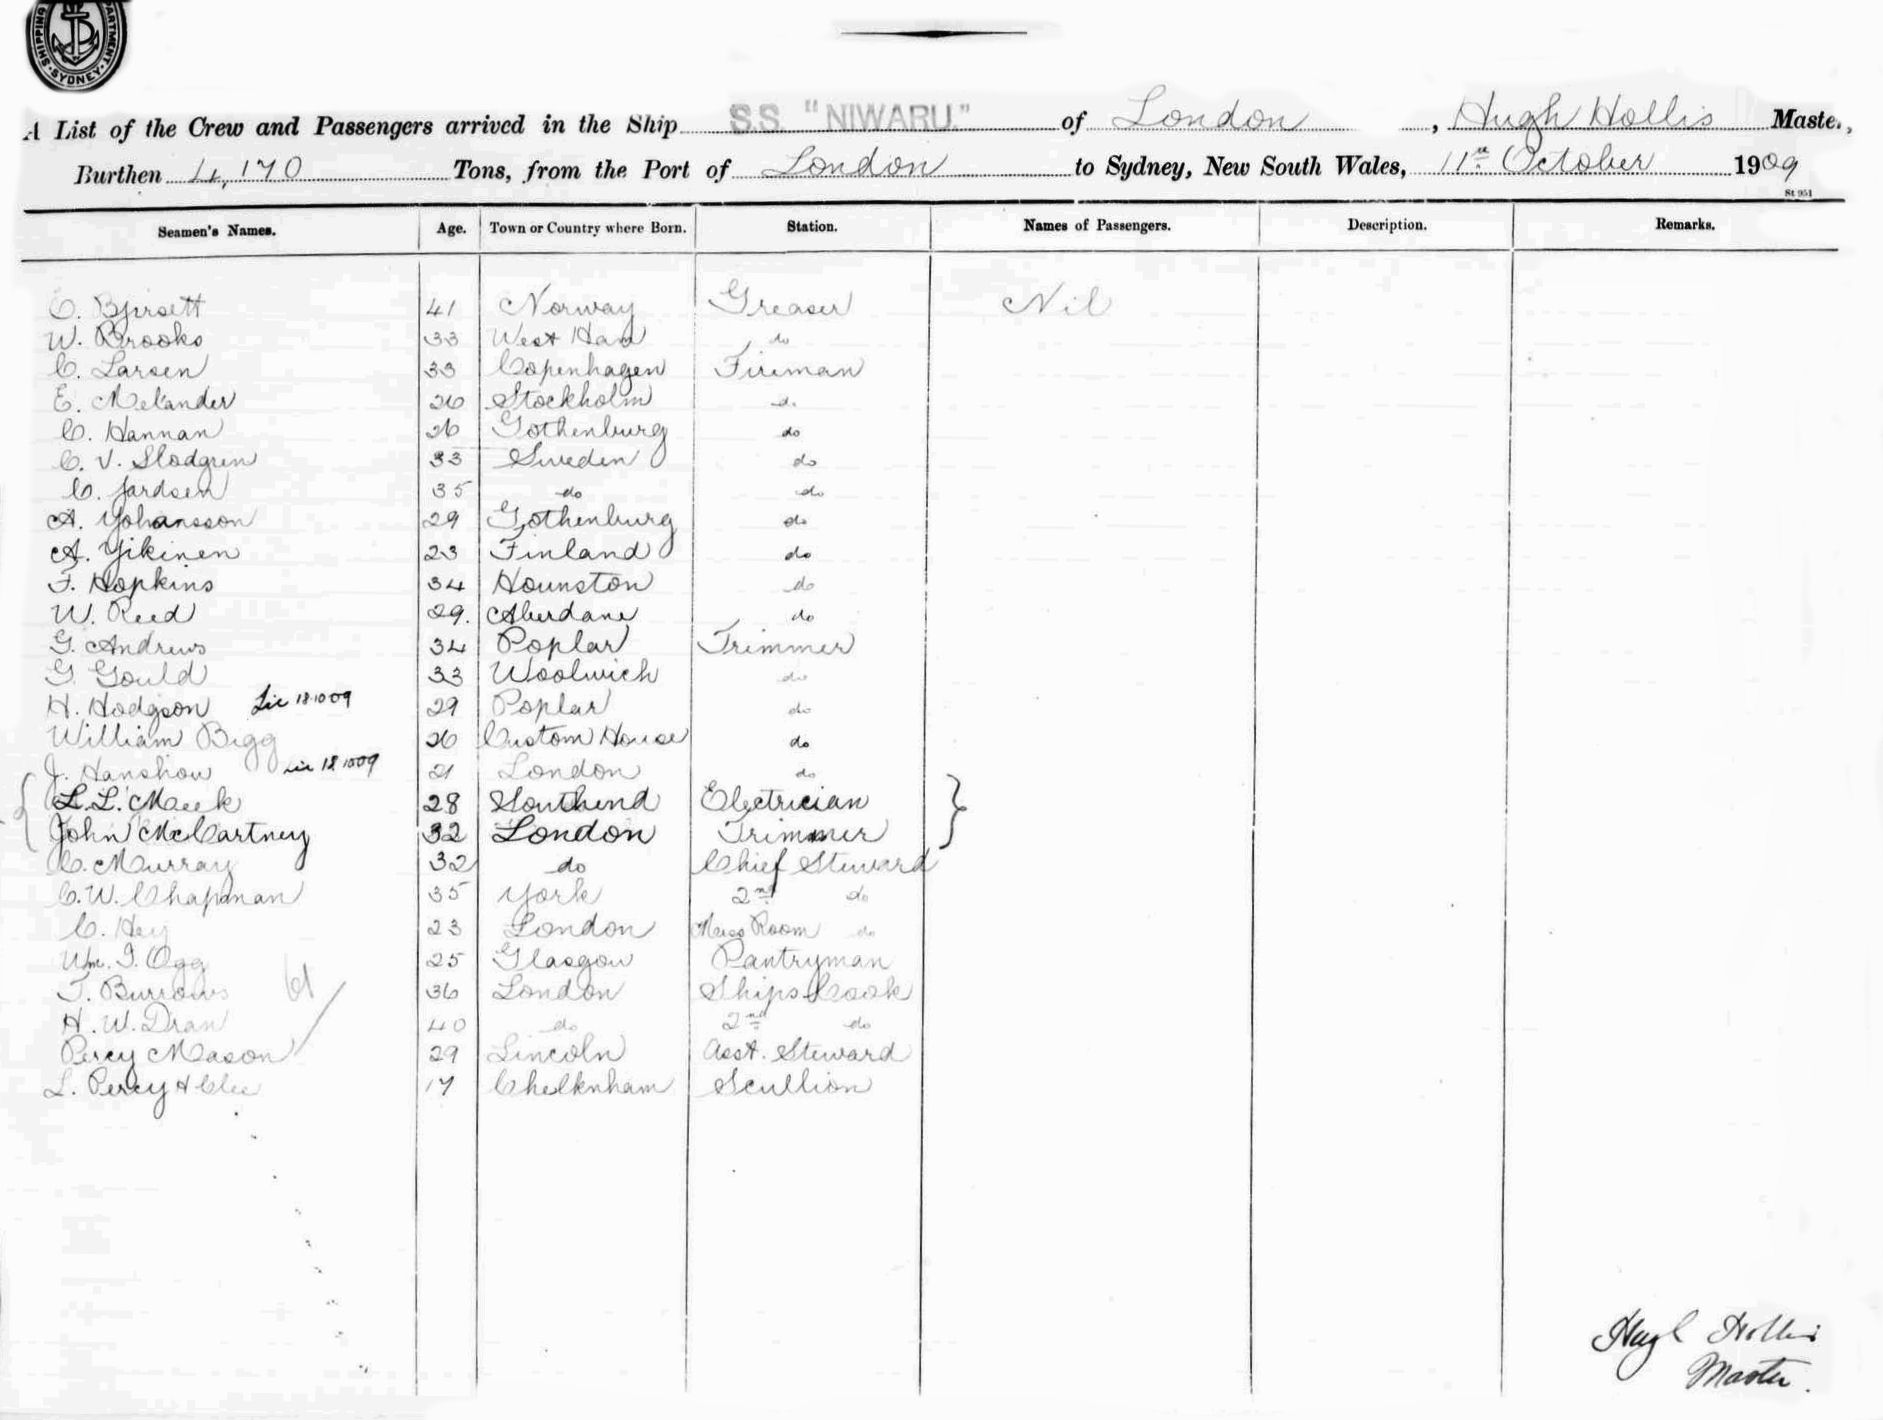 SHIPPING DEPARTMENT SYDNEY
A List of the Crew and Passengers arrived in the Ship S.S. "NIWARU." of London, Hugh Hollis Master,
Burthen 4,170 Tons, from the Port of London to Sydney, New South Wales, 11th October 1909
St 951
Seamen's Names. Age. Town or Country where Born. Station. Names of Passengers. Description. Remarks.
41 Norway Greaser Nil
W. Brooks 33 West Ham do
C. Larsen 33 Copenhagen Fireman
E. Melander 26 Stockholm do
C. Hannan 26 Gothenburg do
C. V. Slodgren 33 Sweden do
C. Jardsen 35 do do
A. Yohansson 29 Gothenburg do
A. Yikinen 23 Finland do
F. Hopkins 34 Hounston do
W. Reed 29. Aberdane do
G. Andrews 34 Poplar Trimmer
G. Gould 33 Woolwich do
H. Hodgson Lic 18 10 09 29 Poplar do
William Bigg 26 Custom House do
J. Hanshow Lic 18 10 09 21 London do
L. L. Meek 28 Southend Electrician
John McCartney 32 London Trimmer
C. Murray 32 do Chief Steward
C. W. Chapman 35 York 2nd do
C. Hey 23 London Mess Room do
Wm. I. Ogg 25 Glasgow Pantryman
T. Burrows 36 London Ships Cook
H. W. Dran 40 do 2nd do
Percy Mason 29 Lincoln Asst. Steward
L. Percy 17 Cheltenham Scullion
Hugh Hollis
Master.